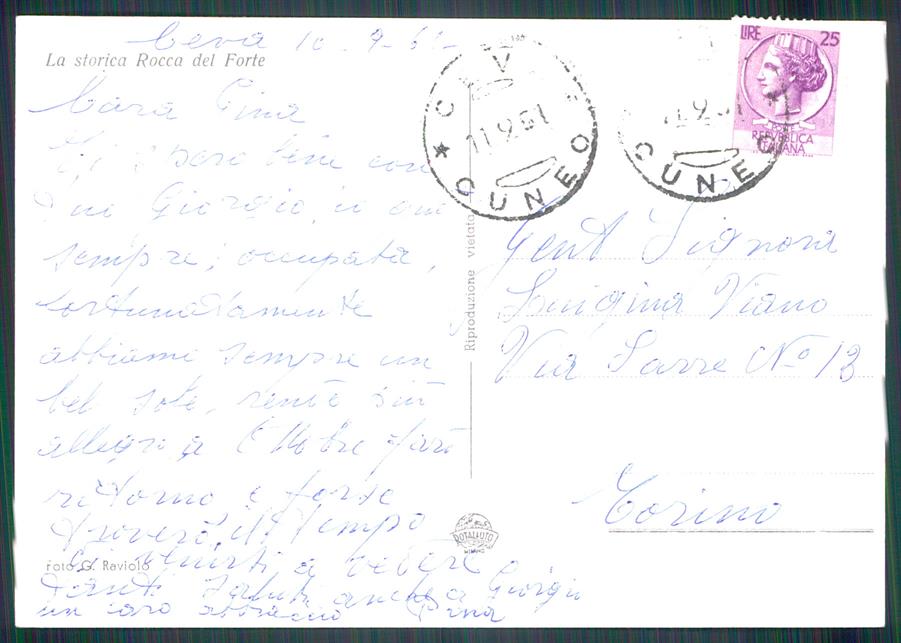 Ceva 10-9-61-
La storica Rocca del Forte
Cara Pina
spero bene con
Giorgio, io
sempre, occupata,
fortunatamente
abbiamo sempre un
bel sole,
allegra a Ottobre farò
ritorno e forse
troverò il tempo
a vedere
foto G. Raviolo
tanti saluti anche a Giorgio
un caro abbraccio
Riproduzione vietata
ROTALFOTO
MILANO
CEVA
11.9.61
* CUNEO
11.9.61
CUNEO
LIRE 25
REPUBBLICA
ITALIANA
Gent Signora
Luigina Viano
Via Sarre No 13
Torino